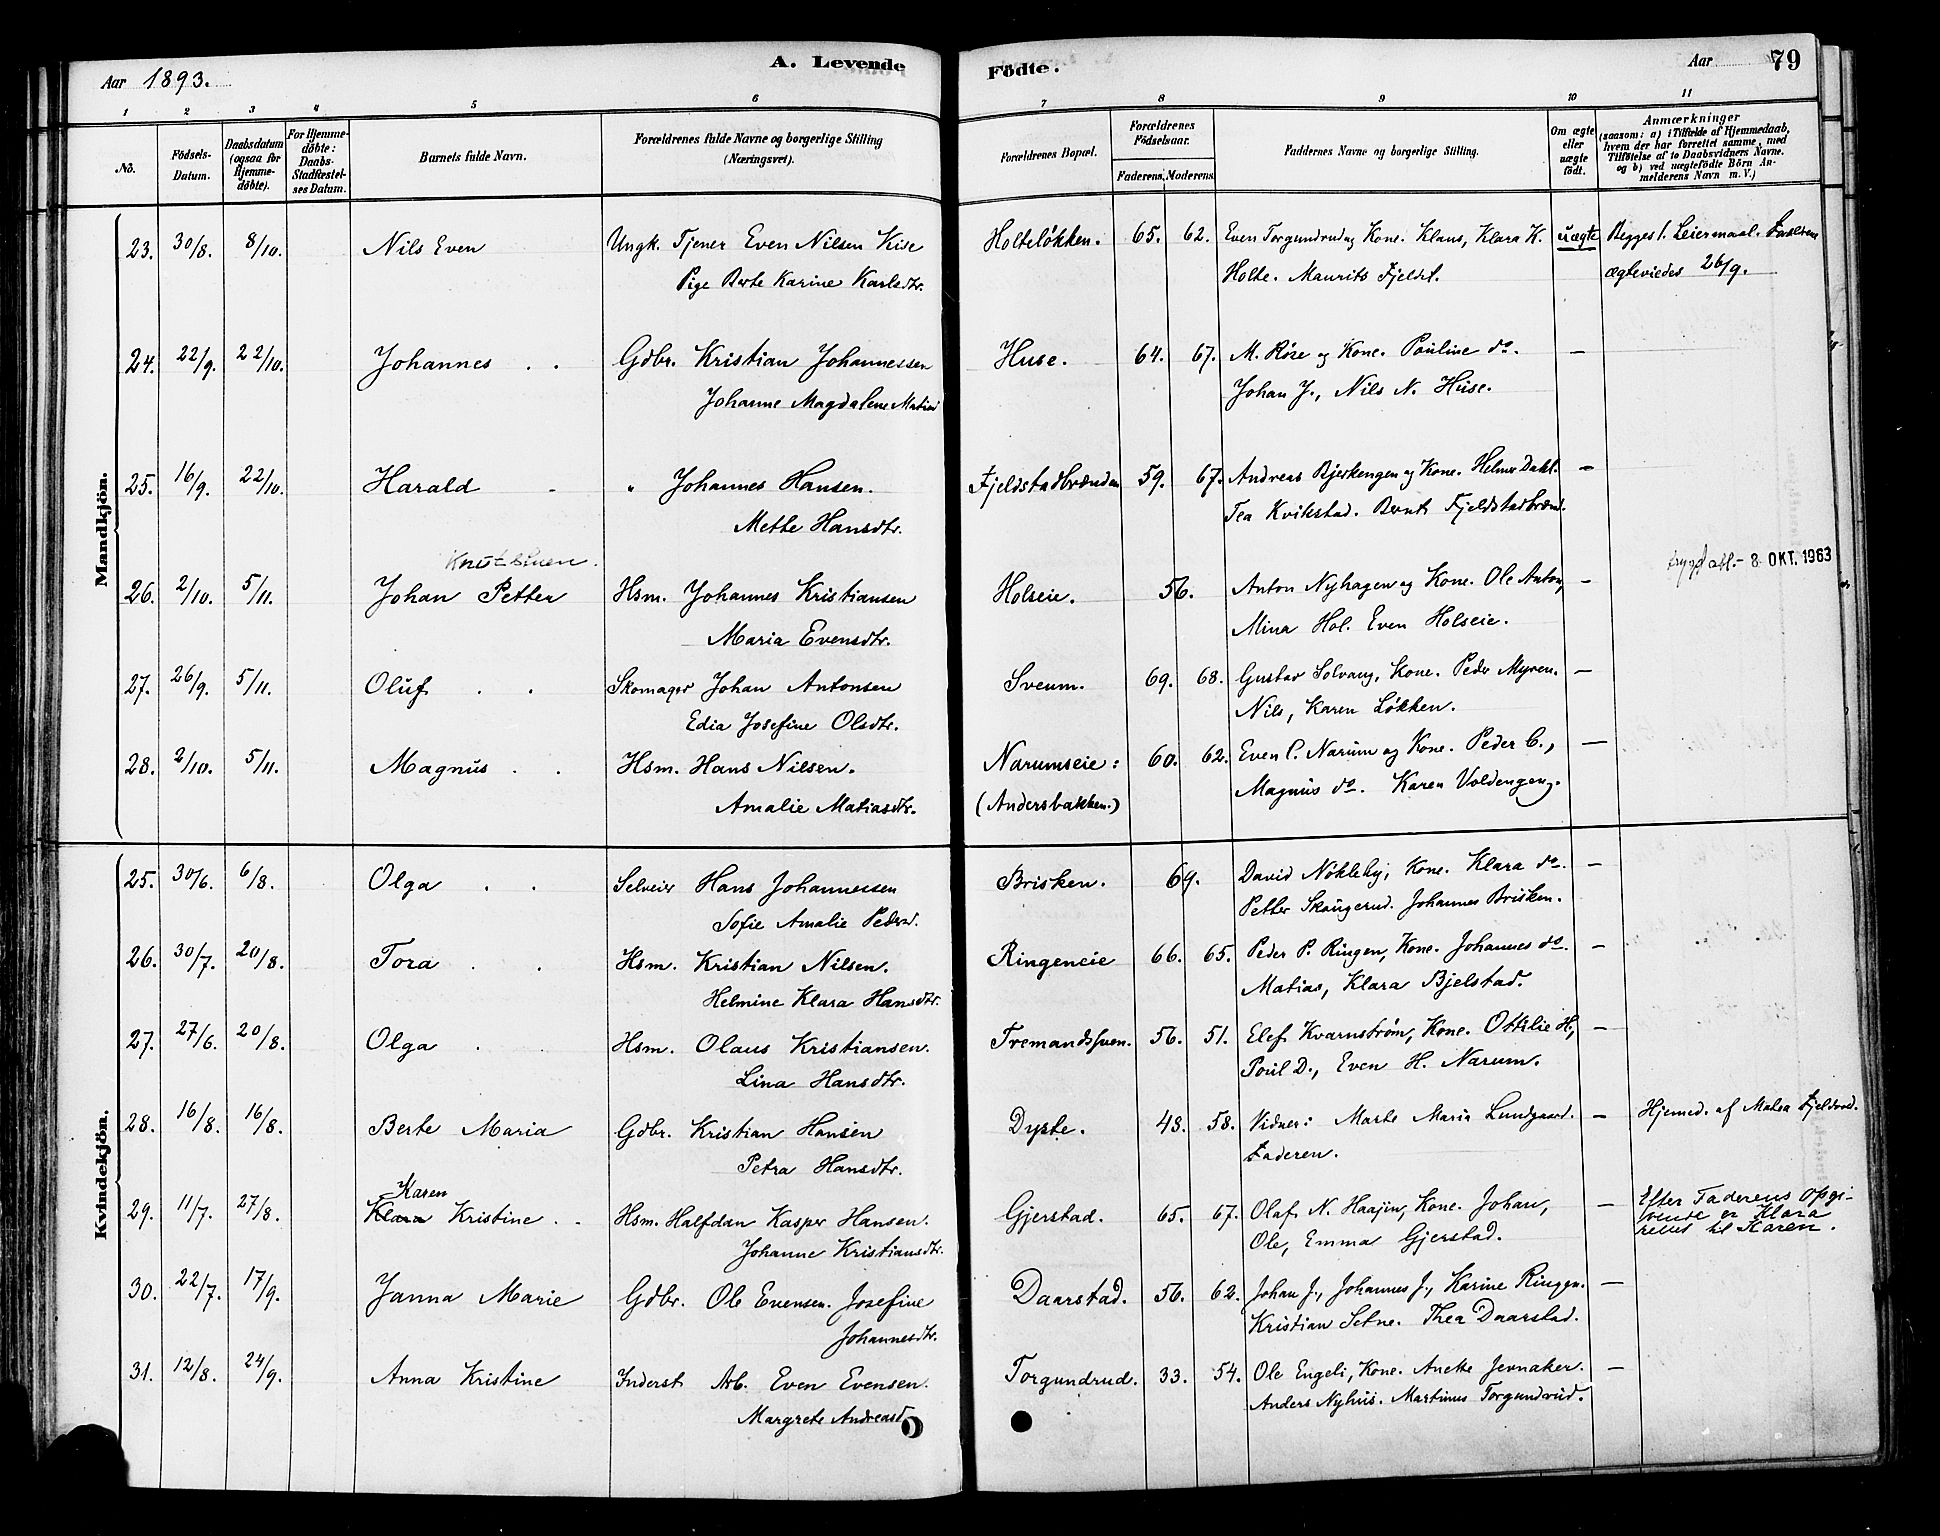 Aar 1893.
A. Levende
Födte.
Aar
79
1 2 3 4 5 6 7 8 9 10 11
No.
Födsels-Datum.
Daabsdatum (ogsaa for Hjemme-döbte).
For Hjemme-döbte: Daabs-Stadfæstel-ses Datum.
Barnets fulde Navn.
Forældrenes fulde Navne og borgerlige Stilling (Næringsvei).
Forældrenes Bopæl.
Forældrenes Födselsaar.
Faderens. Moderens.
Faddernes Navne og borgerlige Stilling.
Om ægte eller uægte födt.
Anmærkninger
(saasom: a) i Tilfælde af Hjemmedaab, hvem der har forrettet samme, med Tilföielse af to Daabsvidners Navne. og b) ved uægtefödte Börn An-melderens Navn m. V.)
Mandkjön.
23. 30/8. 8/10. Nils Even Ungk. Tjener Even Nilsen Kise Holteløkken. 65. 62. Even Torgundrud og Kone. Klaus, Klara K. uægte Begges 1. Leiermaal. Forældrene
Pige Berte Karine Karlsdtr. Holte. Maurits Fjeldst. ægteviedes 26/9.
24. 22/9. 22/10. Johannes Gdbr. Kristian Johannessen Huse. 64. 67. M. Røse og Kone. Pauline do. —
Johanne Magdalene Johan J., Nils N. Huse.
25. 16/9. 22/10. Harald " Johannes Hansen. Fjeldstadbrænden 59. 67. Andreas Bjerkengen og Kone. Helmer Dahl. —
Mette Hansdtr. Tea Kvikstad. Bernt Fjeldstadbrænd.
26. 2/10. 5/11. Johan Petter Hsm. Johannes Kristiansen Holseie. 56. Anton Nyhagen og Kone. Ole Anton, — 8 OKT. 1963
Maria Evensdtr. Mina Hol. Even Holseie.
27. 26/9. 5/11. Oluf Skomager Johan Antonsen Sveum. 69. 68. Gustav Solvang, Kone. Peder Myren. —
Edia Josefine Olsdtr. Nils, Karen Løkken.
28. 2/10. 5/11. Magnus Hsm. Hans Nilsen. Narumseie: 60. 62. Even C. Narum og Kone. Peder C., —
Amalie Matiasdtr. (Andersbakken.) Magnus do. Karen Voldengen.
Kvindekjön.
25. 30/6. 6/8. Olga Selveier Hans Johannessen Brisken. 69. David Nøkleby, Kone. Klara do. —
Sofie Amalie Pedersd. Petter Skougerud. Johannes Brisken.
26. 30/7. 20/8. Tora Hsm. Kristian Nilsen. Ringeneie 66. 65. Peder P. Ringen, Kone. Johannes do. —
Helmine Klara Hansdtr. Matias, Klara Bjelstad.
27. 27/6. 20/8. Olga Hsm. Olaus Kristiansen. 56. 51. Elef Kvarnstrøm, Kone. Ottilie H., —
Lina Hansdtr. Poul D., Even H. Narum.
28. 16/8. 16/8. Berte Maria Gdbr. Kristian Hansen Dyste. 48. 58. Vidner: Marte Maria Lundgaard. — Hjemed. af Matea
Petra Hansdtr. Faderen.
Karen
29. 11/7. 27/8. Klara Kristine Hsm. Halfdan Kasper Hansen. Gjerstad. 65. 67. Olaf N. Haajen, Kone. Johan, — Efter Faderens opgi-
Johanne Kristiansdtr. Ole, Emma Gjerstad. vende er Klara
rettet til Karen.
30. 22/7. 17/9. Janna Marie Gdbr. Ole Evensen. Josefine Daarstad. 56. 62. Johan J., Johannes J., Karine Ringen. —
Johannesdtr. Kristian Setne. Thea Daarstad.
31. 12/8. 24/9. Anna Kristine Inderst Arb. Even Evensen. Torgundrud. 33. 54. Ole Engeli, Kone. Anette Jevnaker. —
Margrete Andreasd Anders Nyhus. Martinus Torgundrud.